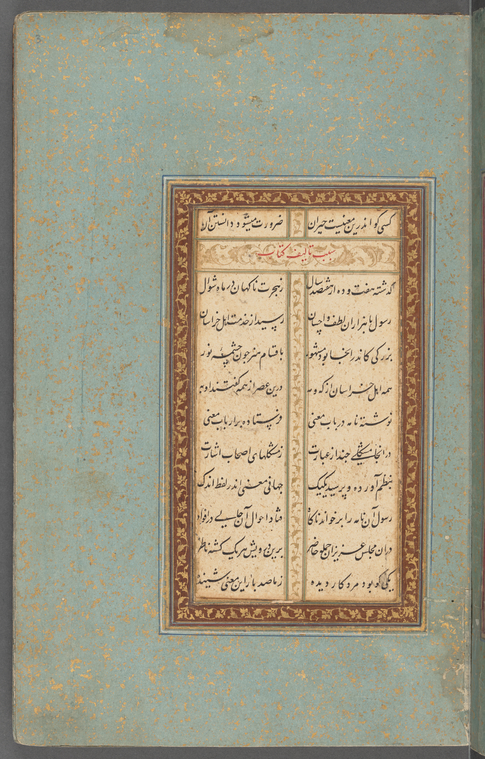 کسی کو اندرین معنیست حیران ضرورت میشود دانستن آن
سبب تالیف کتاب
گذشته هفت و ده از هفصد سال ز هجرت ناگهان در ماه شوال
رسول با هزاران لطف و احسان رسید از خدمت اهل خراسان
بزرگی کاندر انجا بود مشهور باقسام هنر چون چشمه نور
همه اهل خراسان از که و مه درین عصر از همه گفتند او به
نوشته نامه در باب معنی فرستاده بر ارباب معنی
در انجا مشکلی چند از عبارت ز مشکلهای اصحاب اشارت
بنظم آورده و پرسیده یک یک جهانی معنی اندر لفظ اندک
رسول آن نامه را برخواند ناگاه فتاد احوال آن حالی در افواه
در آن مجلس عزیزان جمله حاضر برین درویش هر یک گشته ناظر
یکی کو بود مرد کار دیده ز ما صد بار این معنی شنیده